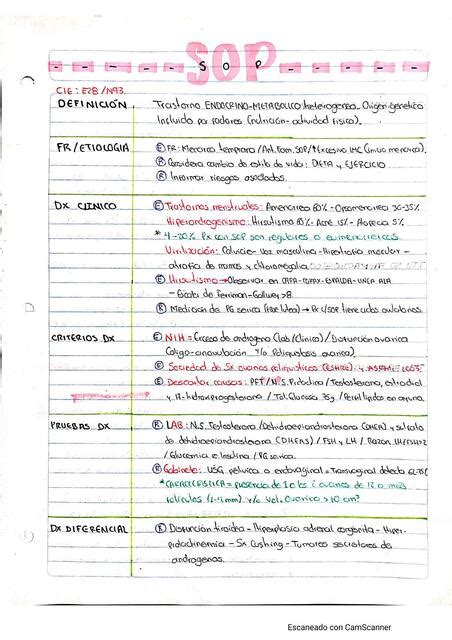 SOP
S O P
CIE: E28 / N93.
DEFINICIÓN
Trastorno ENDOCRINO-METABOLICO heterogeneo. Origen genetico
Incluido por factores (nutrición-actividad física).
FR/ETIOLOGIA
(E) FR: Menarca temprana / Ant. Fam. SOP / ↑Excesivo IMC (inicio menarca).
(R) Considera cambio de estilo de vida: DIETA y EJERCICIO
(R) Informar riesgos asociados.
DX CLINICO
(E) Trastornos menstruales: Amenorrea 60% - Opsomenorrea 30-35%
Hiperandrogenismo: Hirsutismo 60% - Acné 15% - Alopecia 5%
* 4-20% Px con SOP son regulares o eumenorreicas
Virilización: Calvicie - Voz masculina - Hipertrofia muscular -
atrofia de mamas y clitoromegalia
(E) Hirsutismo → Observar en CARA-TORAX-ESPALDA-LINEA ALBA
- Escala de Ferriman-Gallwey >8
(R) Medicion de PG serica (fase lutea) → Px c/SOP tiene ciclos ovulatorios.
CRITERIOS DX
(E) NIH = Exceso de androgeno (lab/clinico) / Disfunción ovarica
(oligo-anovulación y/o Poliquistosis ovarica).
(E) Sociedad de Sx ovarios poliquisticos (ESHRE)
(E) Descartar causas: PFT / N.S. Prolactina / Testosterona, estradiol
y 17-hidroxiprogesterona / Tol. Glucosa 75g / Perfil lipidos en ayuno.
PRUEBAS DX
(R) LAB: N.S. Testosterona / Dehidroepiandrosterona (DHEA) y sulfato
de dehidroepiandrosterona (DHEAS) / FSH y LH / Razón LH/FSH >2
/ Glucemia e Insulina / PG serica.
(R) Gabinete: USG pelvica o endovaginal - Transvaginal detecta
* CARACTERISTICA = presencia de 1 o los 2 ovarios de 12 o más
foliculos (2-9mm) y/o Vol. Ovarico >10 cm³
DX DIFERENCIAL
(R) Disfunción tiroidea - Hiperplasia adrenal congénita - Hiper-
prolactinemia - Sx Cushing - Tumores secretores de
androgenos.
Escaneado con CamScanner